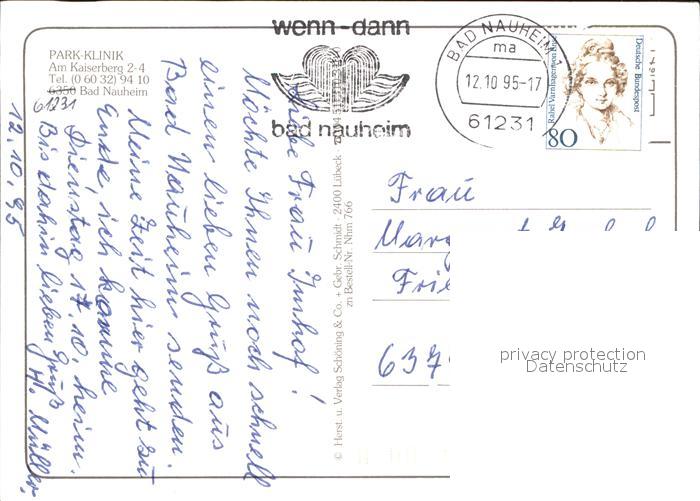 PARK-KLINIK
Am Kaiserberg 2-4
Tel. (0 60 32) 94 10
6350 Bad Nauheim
61231
wenn-dann
bad nauheim
BAD NAUHEIM 1
ma
12.10.95-17
61231
Deutsche Bundespost
Rahel Varnhagen von Ense
80
Liebe Frau Imhof!
Möchte Ihnen noch schnell
einen lieben Gruß aus
Bad Nauheim senden.
Meine Zeit hier geht zu
Ende, ich komme
Dienstag 17.10. heim.
Bis dahin lieben Gruß
H. Müller.
12.10.95
© Herst. u. Verlag Schöning & Co. + Gebr. Schmidt - 2400 Lübeck
zu Bestell-Nr. Nhm 766
Frau
Marg
Frie
637
privacy protection
Datenschutz